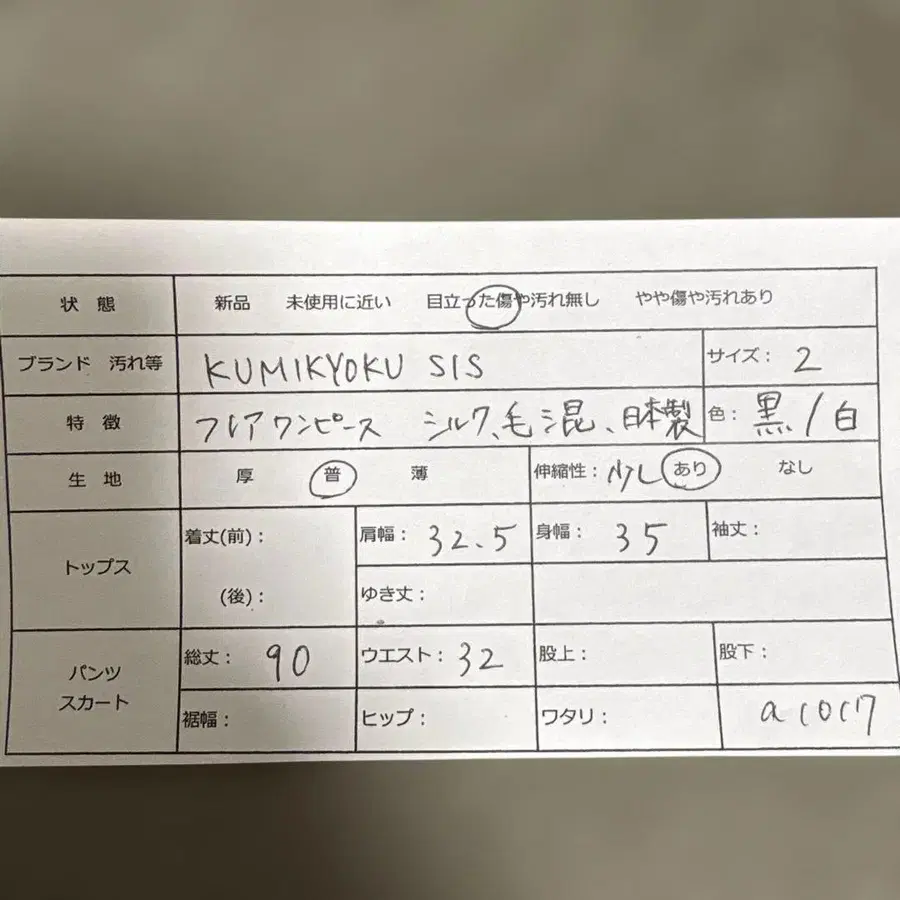 状 態 新品 未使用に近い 目立った傷や汚れ無し やや傷や汚れあり
ブランド 汚れ等 KUMIKYOKU SIS サイズ： 2
特 徴 フレアワンピース シルク、毛混、日本製 色： 黒/白
生 地 厚 普 薄 伸縮性： 少し あり なし
トップス 着丈(前)： 肩幅： 32.5 身幅： 35 袖丈：
(後)： ゆき丈：
パンツ スカート 総丈： 90 ウエスト： 32 股上： 股下：
裾幅： ヒップ： ワタリ：